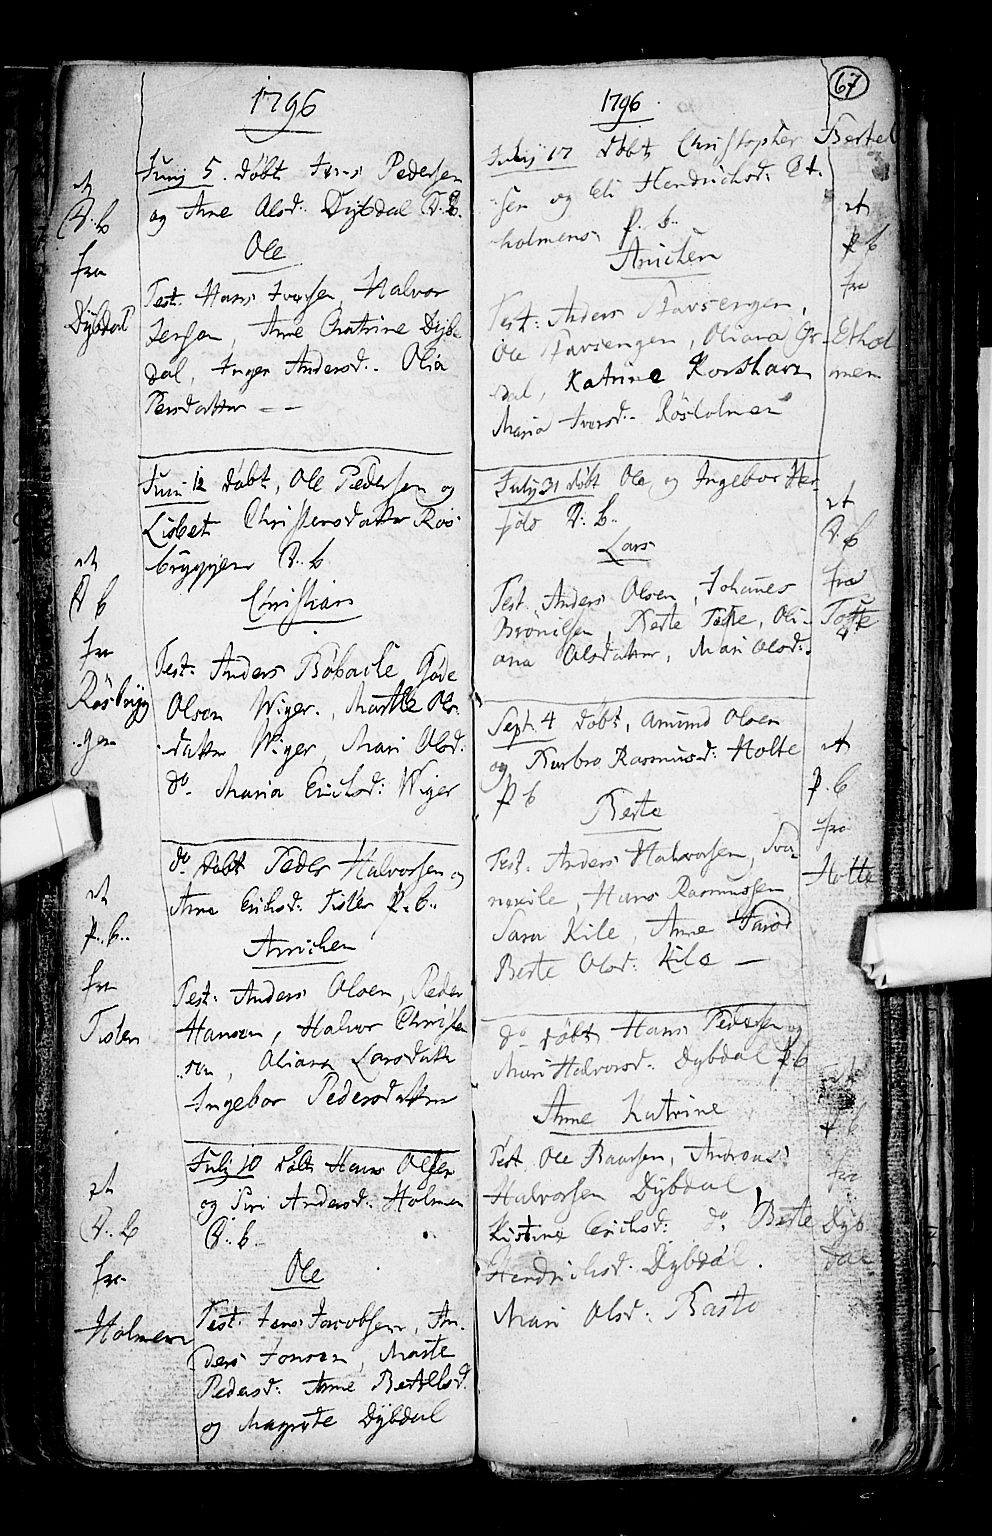 1796
Junij 5. døbt Jens Pedersen
og Anne Olsd: Dybdal D. B.
Ole
Test: Hans Iversen, Halvor
Jensen, Anne Catrine Dyb-
dal, Inger Andersd: Olia
Persdatter
et
D. b
fra
Dÿbdal
Juni 12 døbt, Ole Pedersen og
Lisbet Christensdatter Røs-
bryggen D. b
Christian
Test: Anders
Olsen Wiger, Marthe Ols-
datter Wiger, Mari Olsd:
do. Maria Erichsd: Wiger
et
D b
fra
Røsbryg
gen
do døbt Peder Halvorsen og
Anne Erichsd: Tisler P. b.
Anichen
Test: Anders Olsen, Peder
Hansen, Halvor Christen
sen, Oliana Larsdatter
Ingebor Pedersdatter
et
P. b.
fra
Tisler
Julij 10 døbt Hans Olsen
og Siri Andersd: Holmen
D. b.
Ole
Test: Jens Jacobsen, An-
ders Jonsen, Marte
Pedersd: Anne Bertelsd.
og Magrete Dÿbdal
et
D. b
fra
Holmen
67
1796
Julij 17 døbt Christopher Bertel
sen og Eli Hendrichsd: Et-
holmen P. b.
Anichen
Test: Anders Stavsengen,
Ole Stavsengen, Oliana
dal, Katrine Korshavn
Maria Iversd: Røsholmen
et
P b
fra
Ethol
men
July 31 døbt Ole og Ingebor Her-
føls D. b.
Lars
Test. Anders Olsen, Johanes
Brønilsen, Berte Tofte, Oli-
ana Olsdatter, Mari Olsd:
et
D. b
fra
Tofte
Sept. 4 døbt, Amund Olsen
og Barbro Rasmusd: Holte
P b
Berte
Test: Anders Halvorsen,
Hans Rasmussen
Sara Kile, Anne
Berte Olsd: Kile
et
P. b
fra
Holte
do døbt Hans Pedersen og
Mari Halvorsd: Dybdal P b
Anne Katrine
Test. Ole Baarsen, Andreas
Halvorsen Dÿbdal
Kistine Erichsd: do Berte
Hendrichsd. Dÿbdal.
Mari Olsd: Basto
et
P b
fra
Dÿb
dal